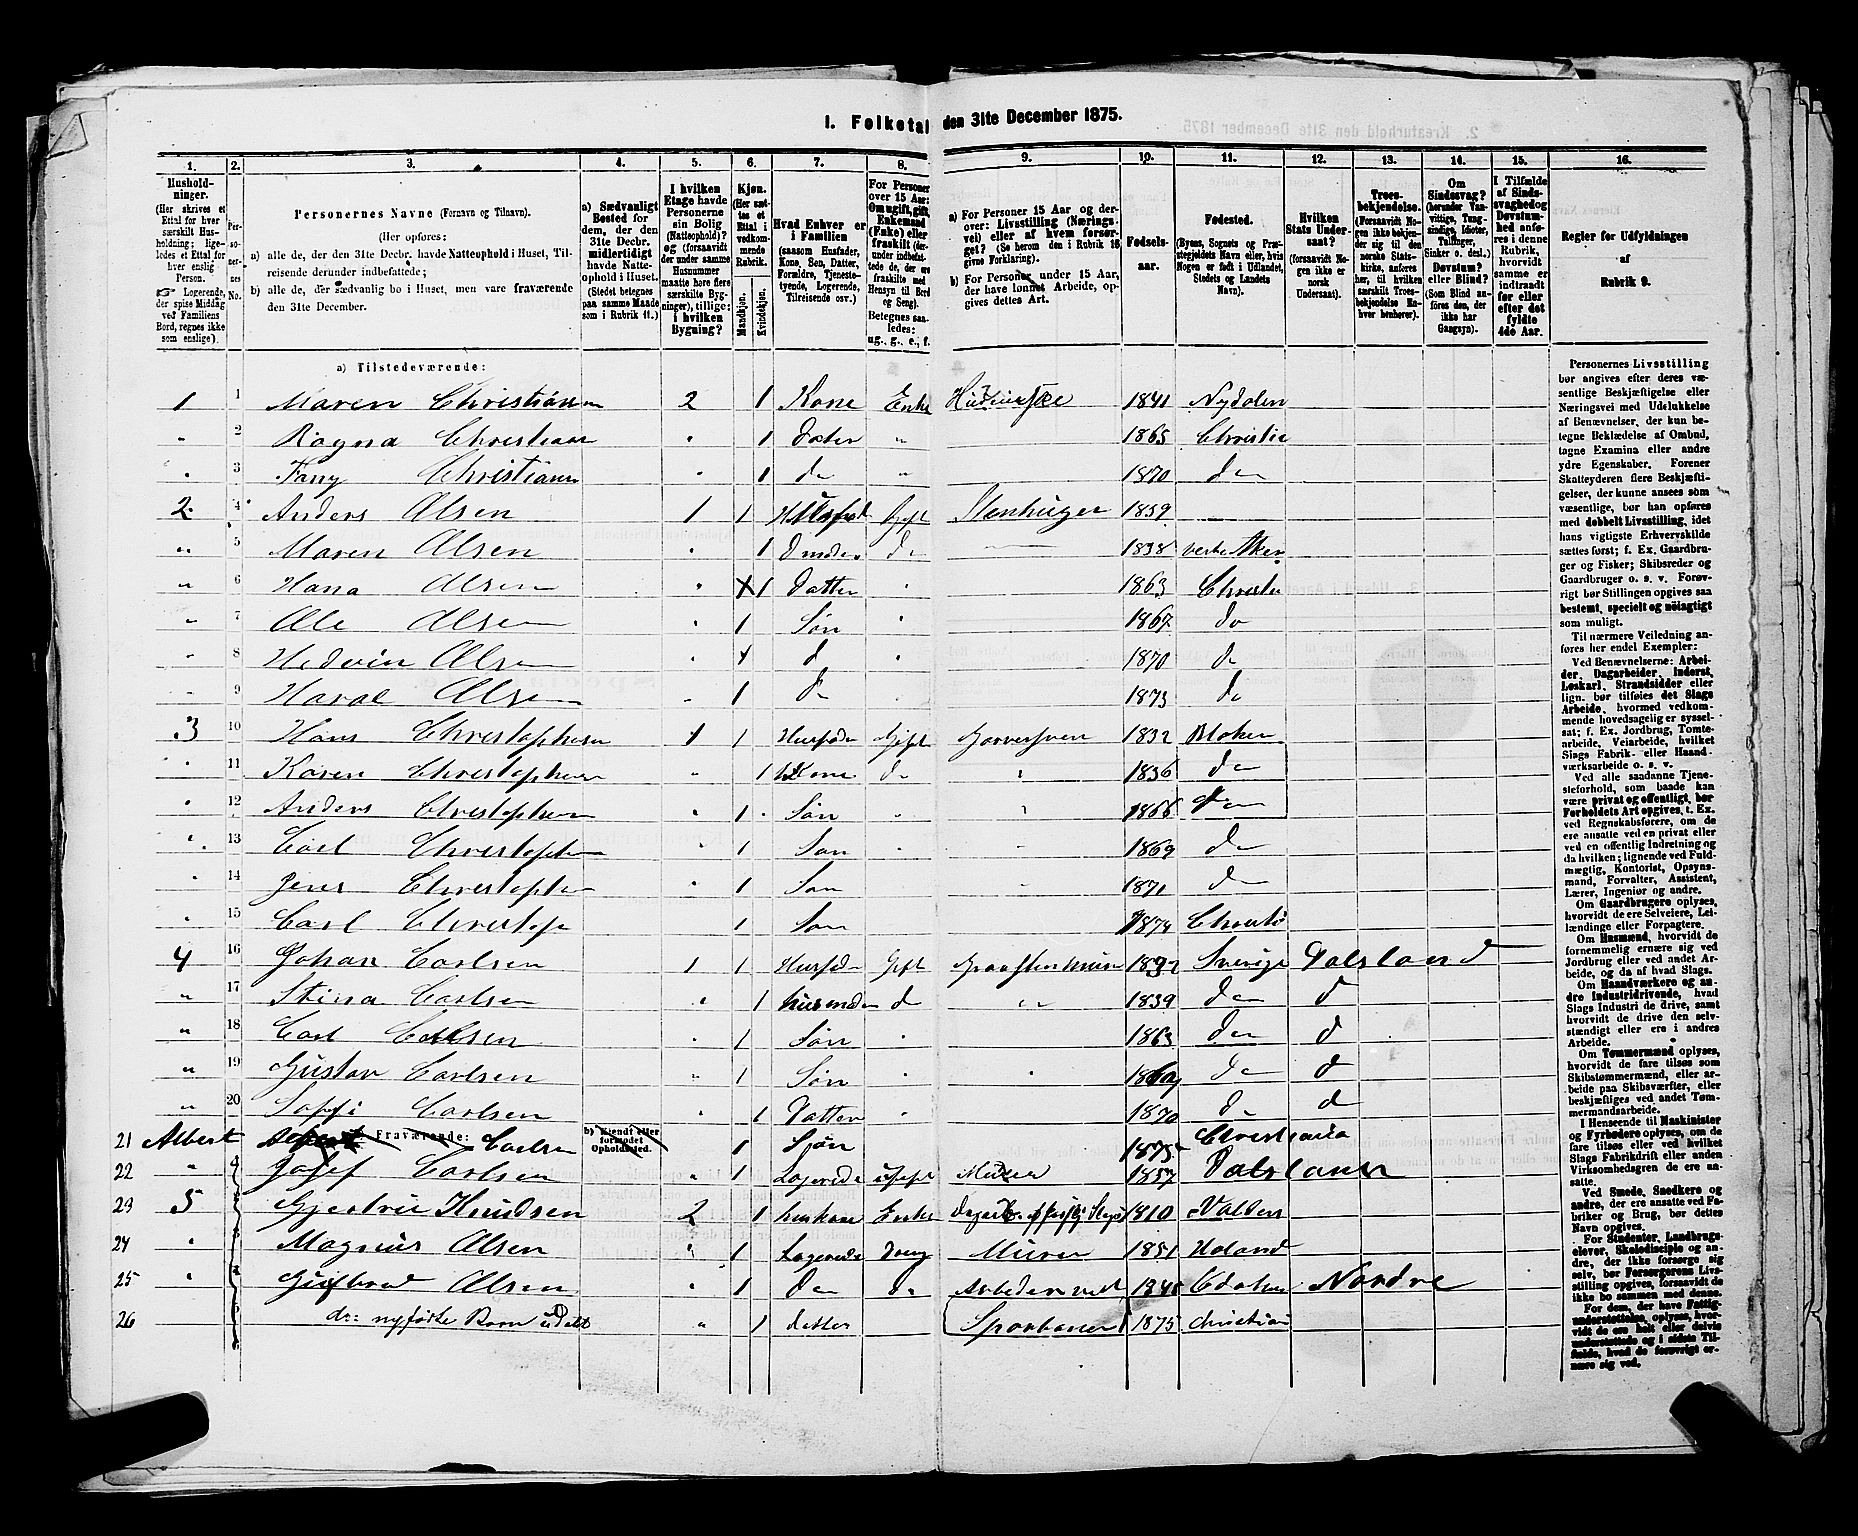 1. Folketal den 31te December 1875.
2. Kreaturhold den 31te December 1875
1. 2. 3. 4. 5. 6. 7. 8. 9. 10. 11. 12. 13. 14. 15. 16.
Hushold-
ninger.
(Her skrives et
Ettal for hver
særskilt Hus-
holdning; lige-
ledes et Ettal for
hver enslig
Person.
Logerende,
der spise Middag
ved Familiens
Bord, regnes ikke
som enslige).
Per-
so-
ner-
nes
No.
Personernes Navne (Fornavn og Tilnavn).
(Her opføres:
a) alle de, der den 31te Decbr. havde Natteophold i Huset, Til-
reisende derunder indbefattede;
b) alle de, der sædvanlig bo i Huset, men vare fraværende
den 31te December.
a) Sædvanligt
Bosted for
dem, der den
31te Decbr.
midlertidigt
havde Natte-
ophold i Huset.
(Stedet betegnes
paa samme Maade
som i Rubrik 11.)
I hvilken
Etage havde
Personerne
sin Bolig
(Natteophold)?
og (forsaavidt
der under samme
Husnummer
maatte høre flere
særskilte Byg-
ninger), tillige:
i hvilken
Bygning?
Kjøn.
(Her sæt-
tes et
Ettal i
vedkom-
mende
Rubrik.
Mandkjøn.
Kvindekjøn.
Hvad Enhver er
i Familien
(saasom Husfader,
Kone, Søn, Datter,
Forældre, Tjeneste-
tyende, Logerende,
Tilreisende osv.)
For Personer
over 15 Aar:
Om ugift, gift,
Enkemand
(Enke) eller
fraskilt (der-
under indbefat-
tede de, der ere
fraskilte med
Hensyn til Bord
og Seng).
Betegnes saa-
ledes:
ug., g., e., f.
a) For Personer 15 Aar og der-
over: Livsstilling (Nærings-
vei) eller af hvem forsør-
get? (Se herom den i Rubrik 16
givne Forklaring).
b) For Personer under 15 Aar,
der have lønnet Arbeide, op-
gives dettes Art.
Fødsels-
aar.
Fødested.
(Byens, Sognets og Præ-
stegjeldets Navn eller, hvis
Nogen er født i Udlandet,
Stedets og Landets
Navn).
Hvilken
Stats Under-
saat?
(forsaavidt No-
gen ikke er
norsk
Undersaat).
Troes-
bekjendelse.
(Forsaavidt No-
gen ikke bekjen-
der sig til den
norske Stats-
kirke, anføres
her, til hvilken
særskilt Troes-
bekjendelse En-
hver henhører).
Om
Sindssvag?
(herunder Van-
vittige, Tung-
sindige, Idioter,
Tullinger,
Sinker o. desl.)
Døvstum?
eller Blind?
(Som Blind an-
føres den, der
ikke har
Gangsyn).
I Tilfælde
af Sinds-
svaghed og
Døvstum-
hed anfø-
res i denne
Rubrik,
hvorvidt
samme er
indtraadt
før eller
efter det
fyldte
4de Aar.
Regler for Udfyldningen
af
Rubrik 9.
a) Tilstedeværende:
1 1 Maren Christiansen 2 1 Kone Enke 1841 Nydalen
2 Ragna Christians 1 Doter 1865 Christia
3 Fany Christians 1 do 1870 do
2 4 Anders Olsen 1 1 Husfad Gift Stenhuger 1839
5 Maren Olsen 1 do 1838 vestre Aker
6 Hana Olsen 1 Datter 1863 Christia
7 Ole Olsen 1 Søn 1867 do
8 Hedvin Olsen 1 d 1870 do
9 Haral Olsen 1 do 1873 do
3 10 Hans Christophersen 1 1 Husfader Gift Garversven 1832
11 Karen Christophersen 1 Kone do 1836 do
12 Anders Christophersen 1 Søn 1866 do
13 Carl Christophersen 1 Søn 1869 do
14 Jens Christophersen 1 Søn 1871 do
15 Carl Christoph 1 Søn 1874 Christi
4 16 Johan Carlsen 1 1 Husfader Gift Sverige Dalsland
17 Stina Carlsen 1 husmoder d 1839 do d
18 Carl Carlsen 1 Søn 1863 do d
19 Gustav Carlsen 1 Søn do d
20 Soffi Carlsen 1 Datter 1870 do d
b) Fraværende:
b) Kjendt eller
formodet
Opholdssted.
21 Albert Carlsen 1 Søn 1875 Christiania
22 Josef Carlsen 1 Logerende ugift Murer 1857 Dalsland
23 5 Knudsen 2 1 huskone Enke 1810 Valders
24 Magnus Olsen 1 Logerende Murer 1851
25 Olsen 1 do do Nordre
26 nyfødte Barn 1 datter 1875 Christian
Personernes Livsstilling
bør angives efter deres væ-
sentlige Beskjæftigelse eller
Næringsvei med Udelukkelse
af Benævnelser, der kun be-
tegne Beklædelse af Ombud,
tagne Examina eller andre
ydre Egenskaber. Forener
Skatteyderen flere Beskjæfti-
gelser, der kunne ansees som
væsentlige, bør han opføres
med dobbelt Livsstilling, idet
hans vigtigste Erhvervskilde
sættes først; f. Ex. Gaardbru-
ger og Fisker; Skibsreder og
Gaardbruger o. s. v. Forøv-
rigt bør Stillingen opgives saa
bestemt, specielt og nøiagtigt
som muligt.
Til nærmere Veiledning an-
føres her endel Exempler:
Ved Benævnelserne: Arbei-
der, Dagarbeider, Inderst,
Løskarl, Strandsidder eller
lign. bør tilføies det Slags
Arbeide, hvormed vedkom-
mende hovedsagelig er syssel-
sat; f. Ex. Jordbrug, Tomte-
arbeide, Veiarbeide, hvilket
Slags Fabrik- eller Haand-
værksarbeide o. s. v.
Ved alle saadanne Tjene-
steforhold, som baade kan
være privat og offentligt, bør
Forholdets Art opgives, t. Ex.
ved Regnskabsførere, om de
ere ansatte ved en privat eller
ved en offentlig Indretning og
da hvilken; lignende ved Fuld-
mægtig, Kontorist, Opsyns-
mand, Forvalter, Assistent,
Lærer, Ingeniør og andre.
Om Gaardbrugere oplyses,
hvorvidt de ere Selveiere, Lei-
lændinge eller Forpagtere.
Om Husmænd, hvorvidt de
fornemmelig ernære sig ved
Jordbrug eller ved andet Ar-
beide, og da af hvad Slags.
Om Haandværkere og an-
dre Industridrivende, hvad
Slags Industri de drive, samt
hvorvidt de drive den selv-
stændigt eller ere i andres
Arbeide.
Om Tømmermænd oplyses,
hvorvidt de fare tilsøs som
Skibstømmermænd, eller ar-
beide paa Skibsværfter, eller
beskjæftiges ved andet Tøm-
mermandsarbeide.
I Henseende til Maskinister
og Fyrbødere oplyses, om de
fare tilsøs eller ved hvilket
Slags Fabrikdrift eller anden
Virksomhed de ere an-
satte.
Ved Smede, Snedkere og
andre, der ere ansatte ved Fa-
briker og Brug, bør dettes
Navn opgives.
For Studenter, Landbrugs-
elever, Skoledisciple og an-
dre, der ikke forsørge sig
selv, bør Forsørgerens Livs-
stilling opgives, forsaavidt de
ikke bo sammen med denne.
For dem, der have Fattig-
understøttelse, oplyses, hvor-
vidt de ere helt eller delvis
understøttede og i sidste Til-
fælde, hvad de forøvrigt er-
nære sig ved.